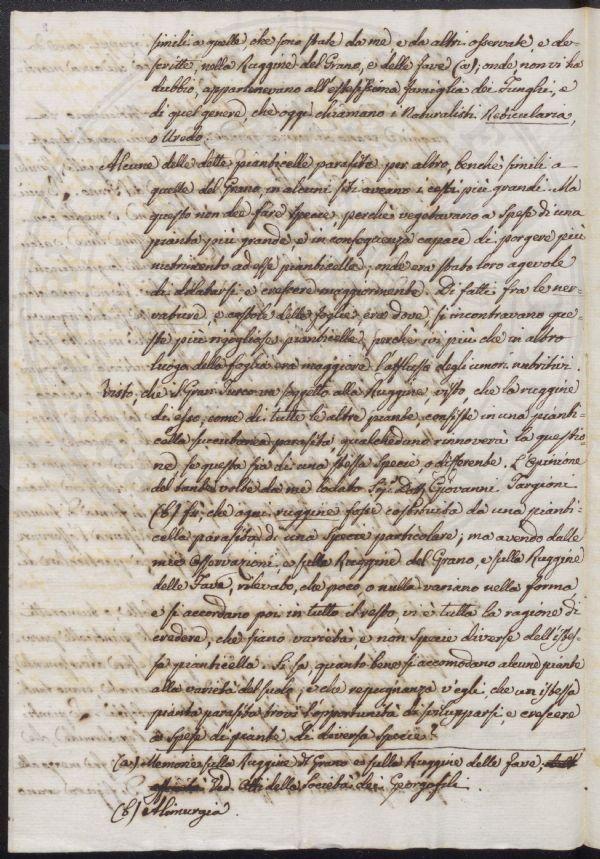 simili a quelle, che sono state da me, e da altri osservate, e de-
scritte, nella Ruggine del Grano, e delle fave (a); onde non vi ha
dubbio, appartenevano all'estesissima famiglia dei Funghi, e
di quel genere, che oggi chiamano i Naturalisti Reticularia,
o Uredo.
Alcune delle dette pianticelle parasite per altro, benchè simili a
quelle del Grano, in alcuni siti aveano i cesti più grandi. Ma
questo non dee fare specie, perchè vegetavano a spese di una
pianta più grande, e in conseguenza capace di porgere più
nutrimento ad esse pianticelle; onde era stato loro agevole
di dilatarsi, e crescere maggiormente. Di fatti fra le ner-
vature, e costole delle foglie, era dove, si incontravano que-
ste più rigogliose pianticelle, perchè ivi più che in altro
luogo della foglia era maggiore l'afflusso degli umori nutritivi.
Visto, che il Gran Turco va soggetto alla Ruggine, visto, che la ruggine
di esso, come di tutte le altre piante, consiste in una pianti-
cella succutanea parasita, qualcheduno rinnoverà la questio-
ne, se questa sia di una stessa specie, o differente. L'Opinione
del tante volte da me lodato Sig. Dott. Giovanni Targioni
(b) fù, che ogni ruggine fosse costituita da una pianti-
cella parasita di una specie particolare; ma avendo dalle
mie Osservazioni, e sulla Ruggine del Grano, e sulla Ruggine
delle Fave, rilevato, che poco, o nulla variano nella forma
e si accordano poi in tutto il resto, vi è tutta la ragione di
credere, che siano varietà, e non specie diverse dell'istes-
sa pianticella. Si sa quanto bene si accomodano alcune piante
alla varietà del suolo, e che repugnanza v'è egli, che un istessa
pianta parasita trovi l'opportunità di svilupparsi, e crescere
a spese di piante di diversa specie?
(a) Memorie sulla Ruggine del Grano e sulla Ruggine delle fave,
Ved. Atti della Società dei Georgofili.
(b) Alimurgia